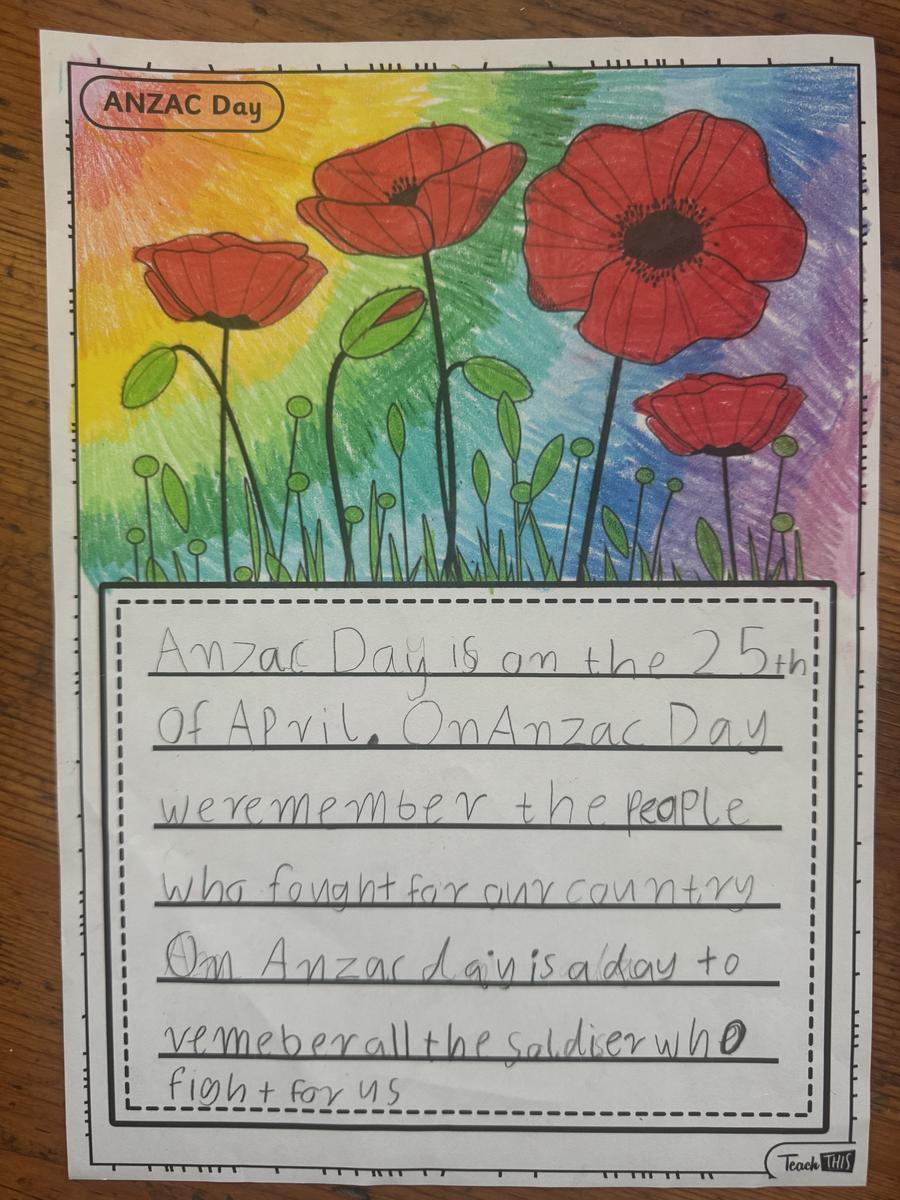 ANZAC Day
Anzac Day is on the 25th
Of April. On Anzac Day
we remember the people
who fought for our country
On Anzac daiy is a day to
remeber all the soldiser who
fight for us
Teach THIS